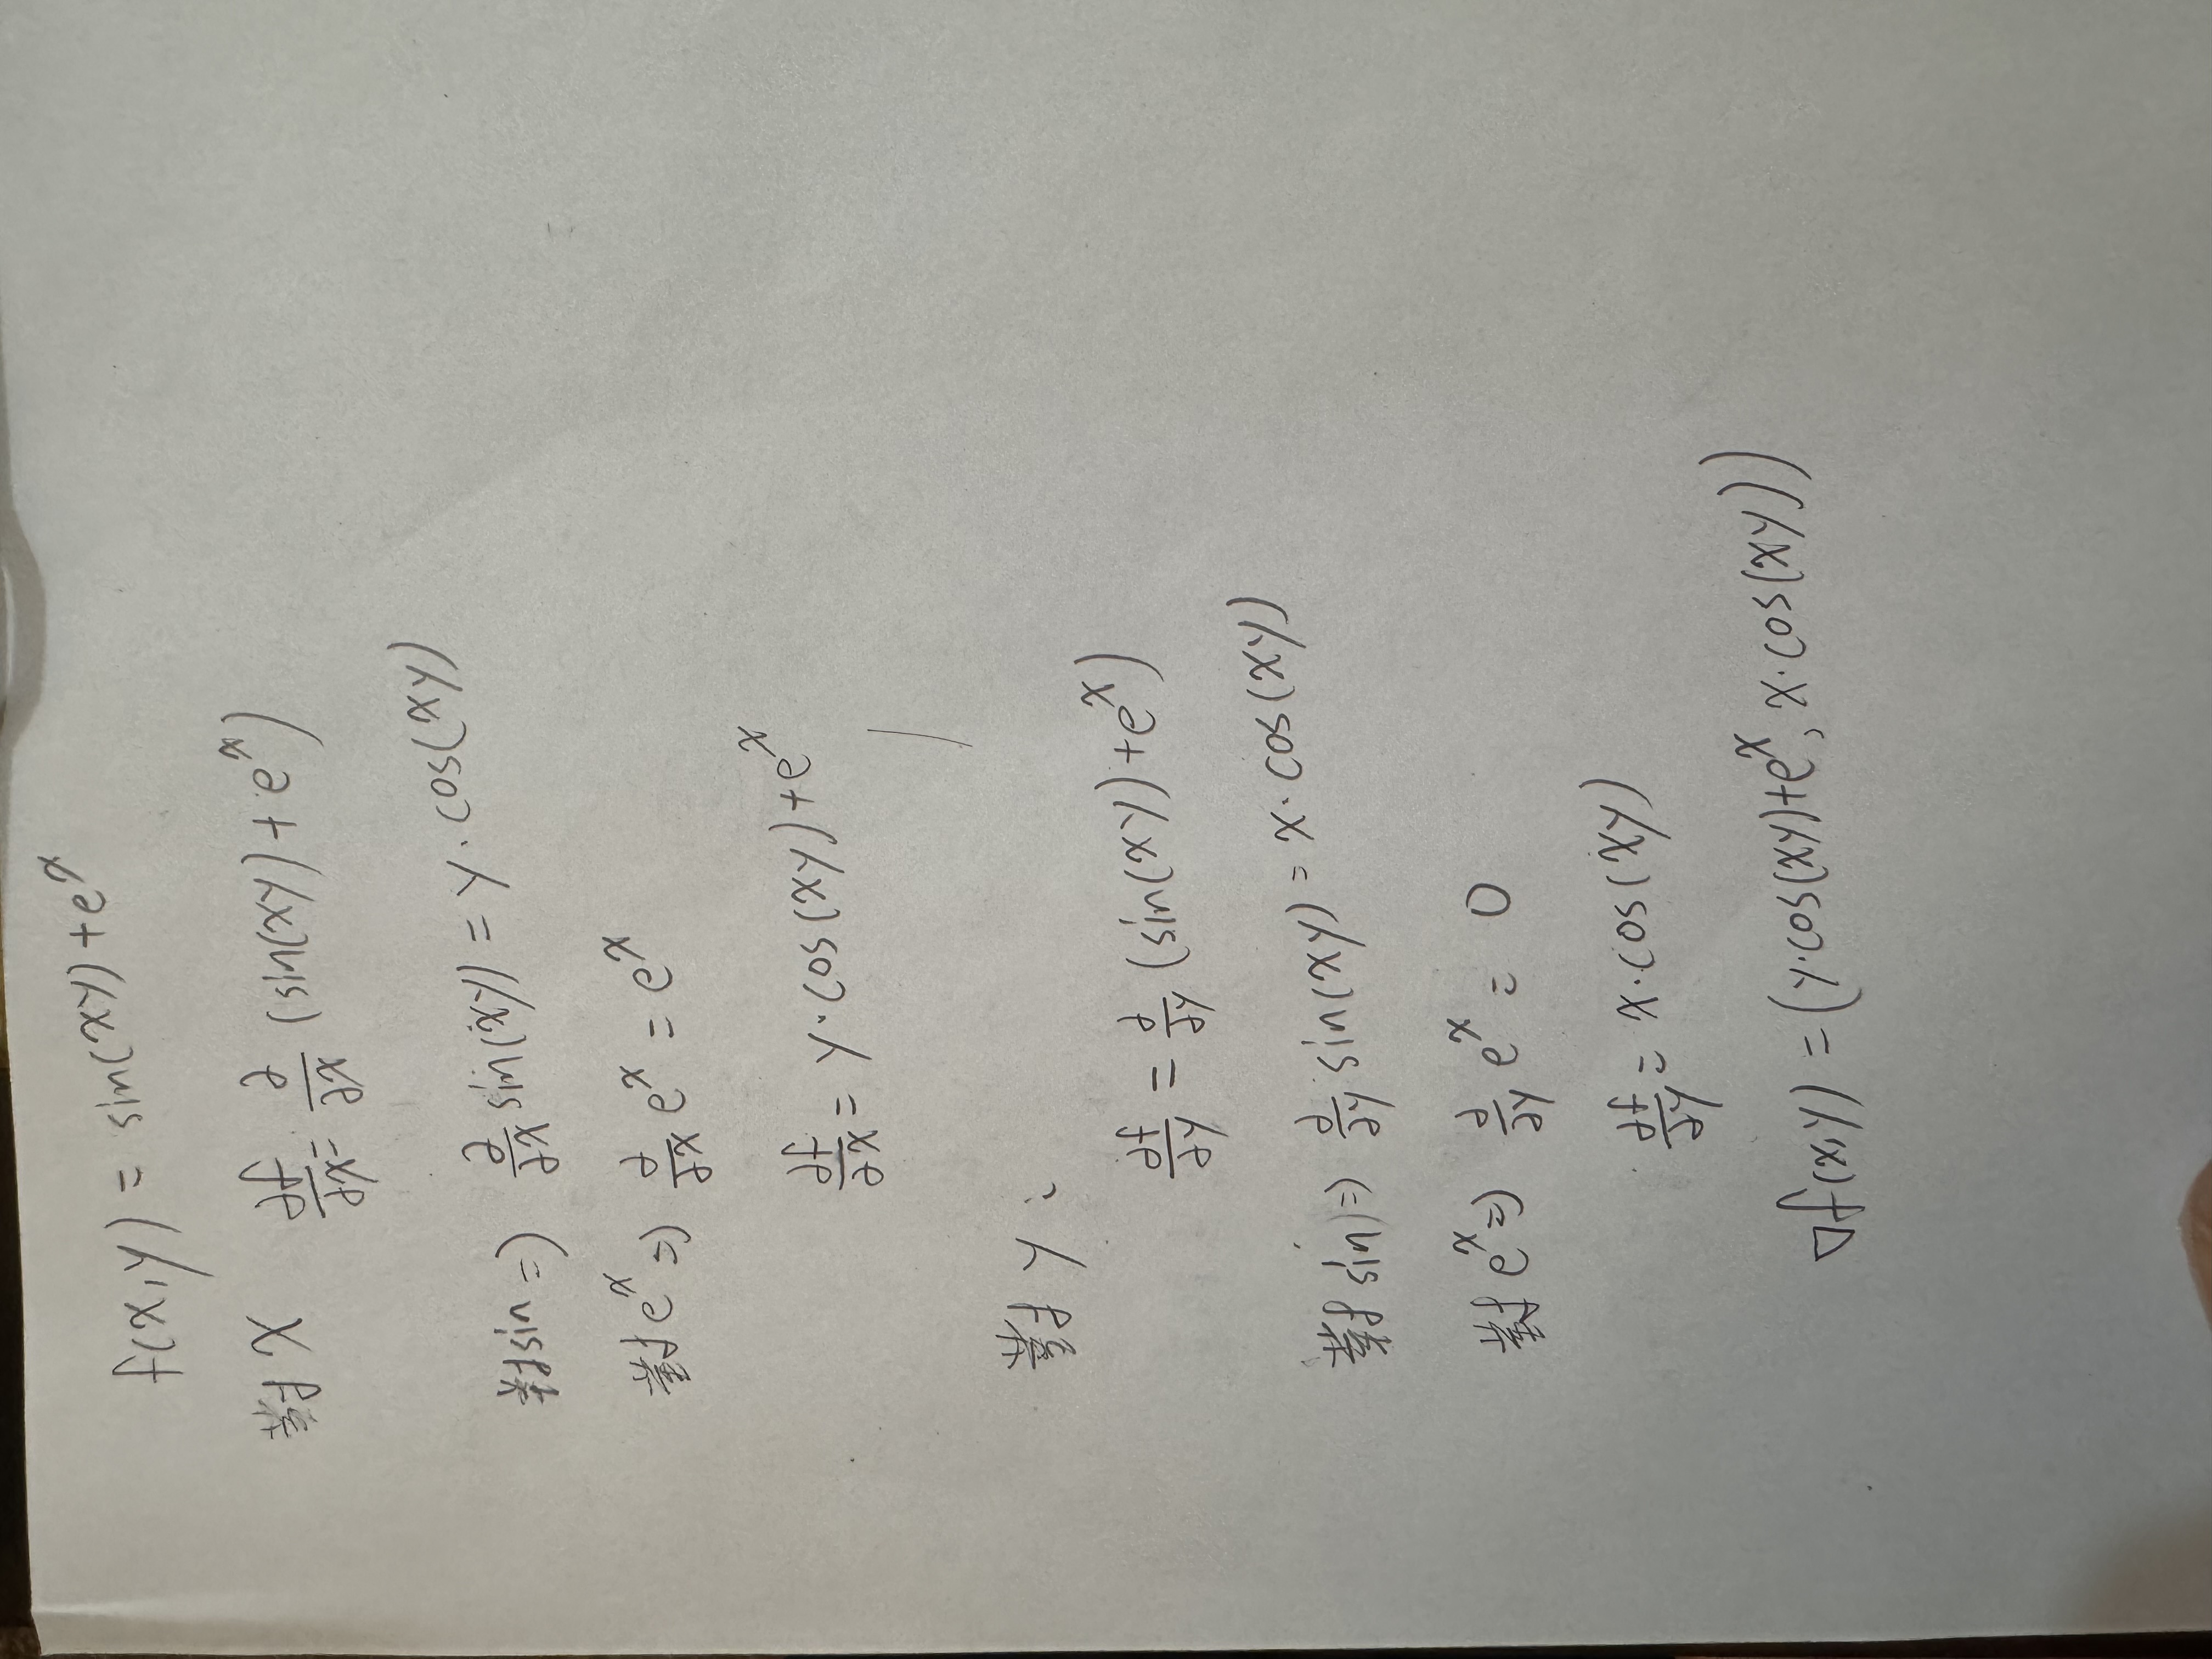 f(x,y) = sin(xy) + e^x
對 x ∂f/∂x = ∂/∂x (sin(xy) + e^x)
對 sin => ∂/∂x sin(xy) = y·cos(xy)
對 e^x => ∂/∂x e^x = e^x
∂f/∂x = y·cos(xy) + e^x
對 y :
∂f/∂y = ∂/∂y (sin(xy) + e^x)
對 sin => ∂/∂y sin(xy) = x·cos(xy)
對 e^x => ∂/∂y e^x = 0
∂f/∂y = x·cos(xy)
∇f(x,y) = (y·cos(xy) + e^x, x·cos(xy))